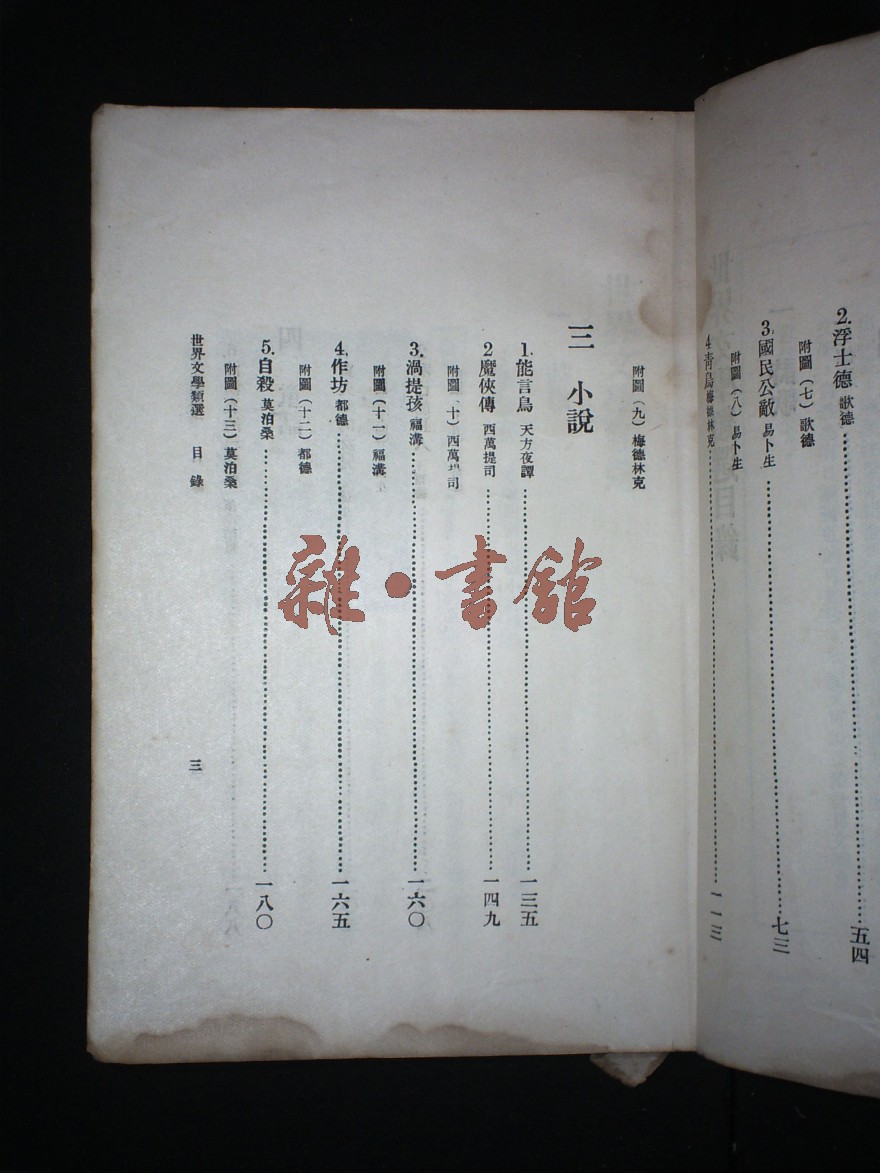 2. 浮士德 歌德……五四
附圖(七)歌德
3. 國民公敵 易卜生……七三
附圖(八)易卜生
4. 靑鳥 梅德林克……一一三
附圖(九)梅德林克
三 小說
1. 能言鳥 天方夜譚……一三五
2 魔俠傳 西萬提司……一四九
附圖(十)西萬提司
3. 渦提孩 福溝……一六〇
附圖(十一)福溝
4. 作坊 都德……一六五
附圖(十二)都德
5. 自殺 莫泊桑……一八〇
附圖(十三)莫泊桑
世界文學類選 目錄 三
雜·書館